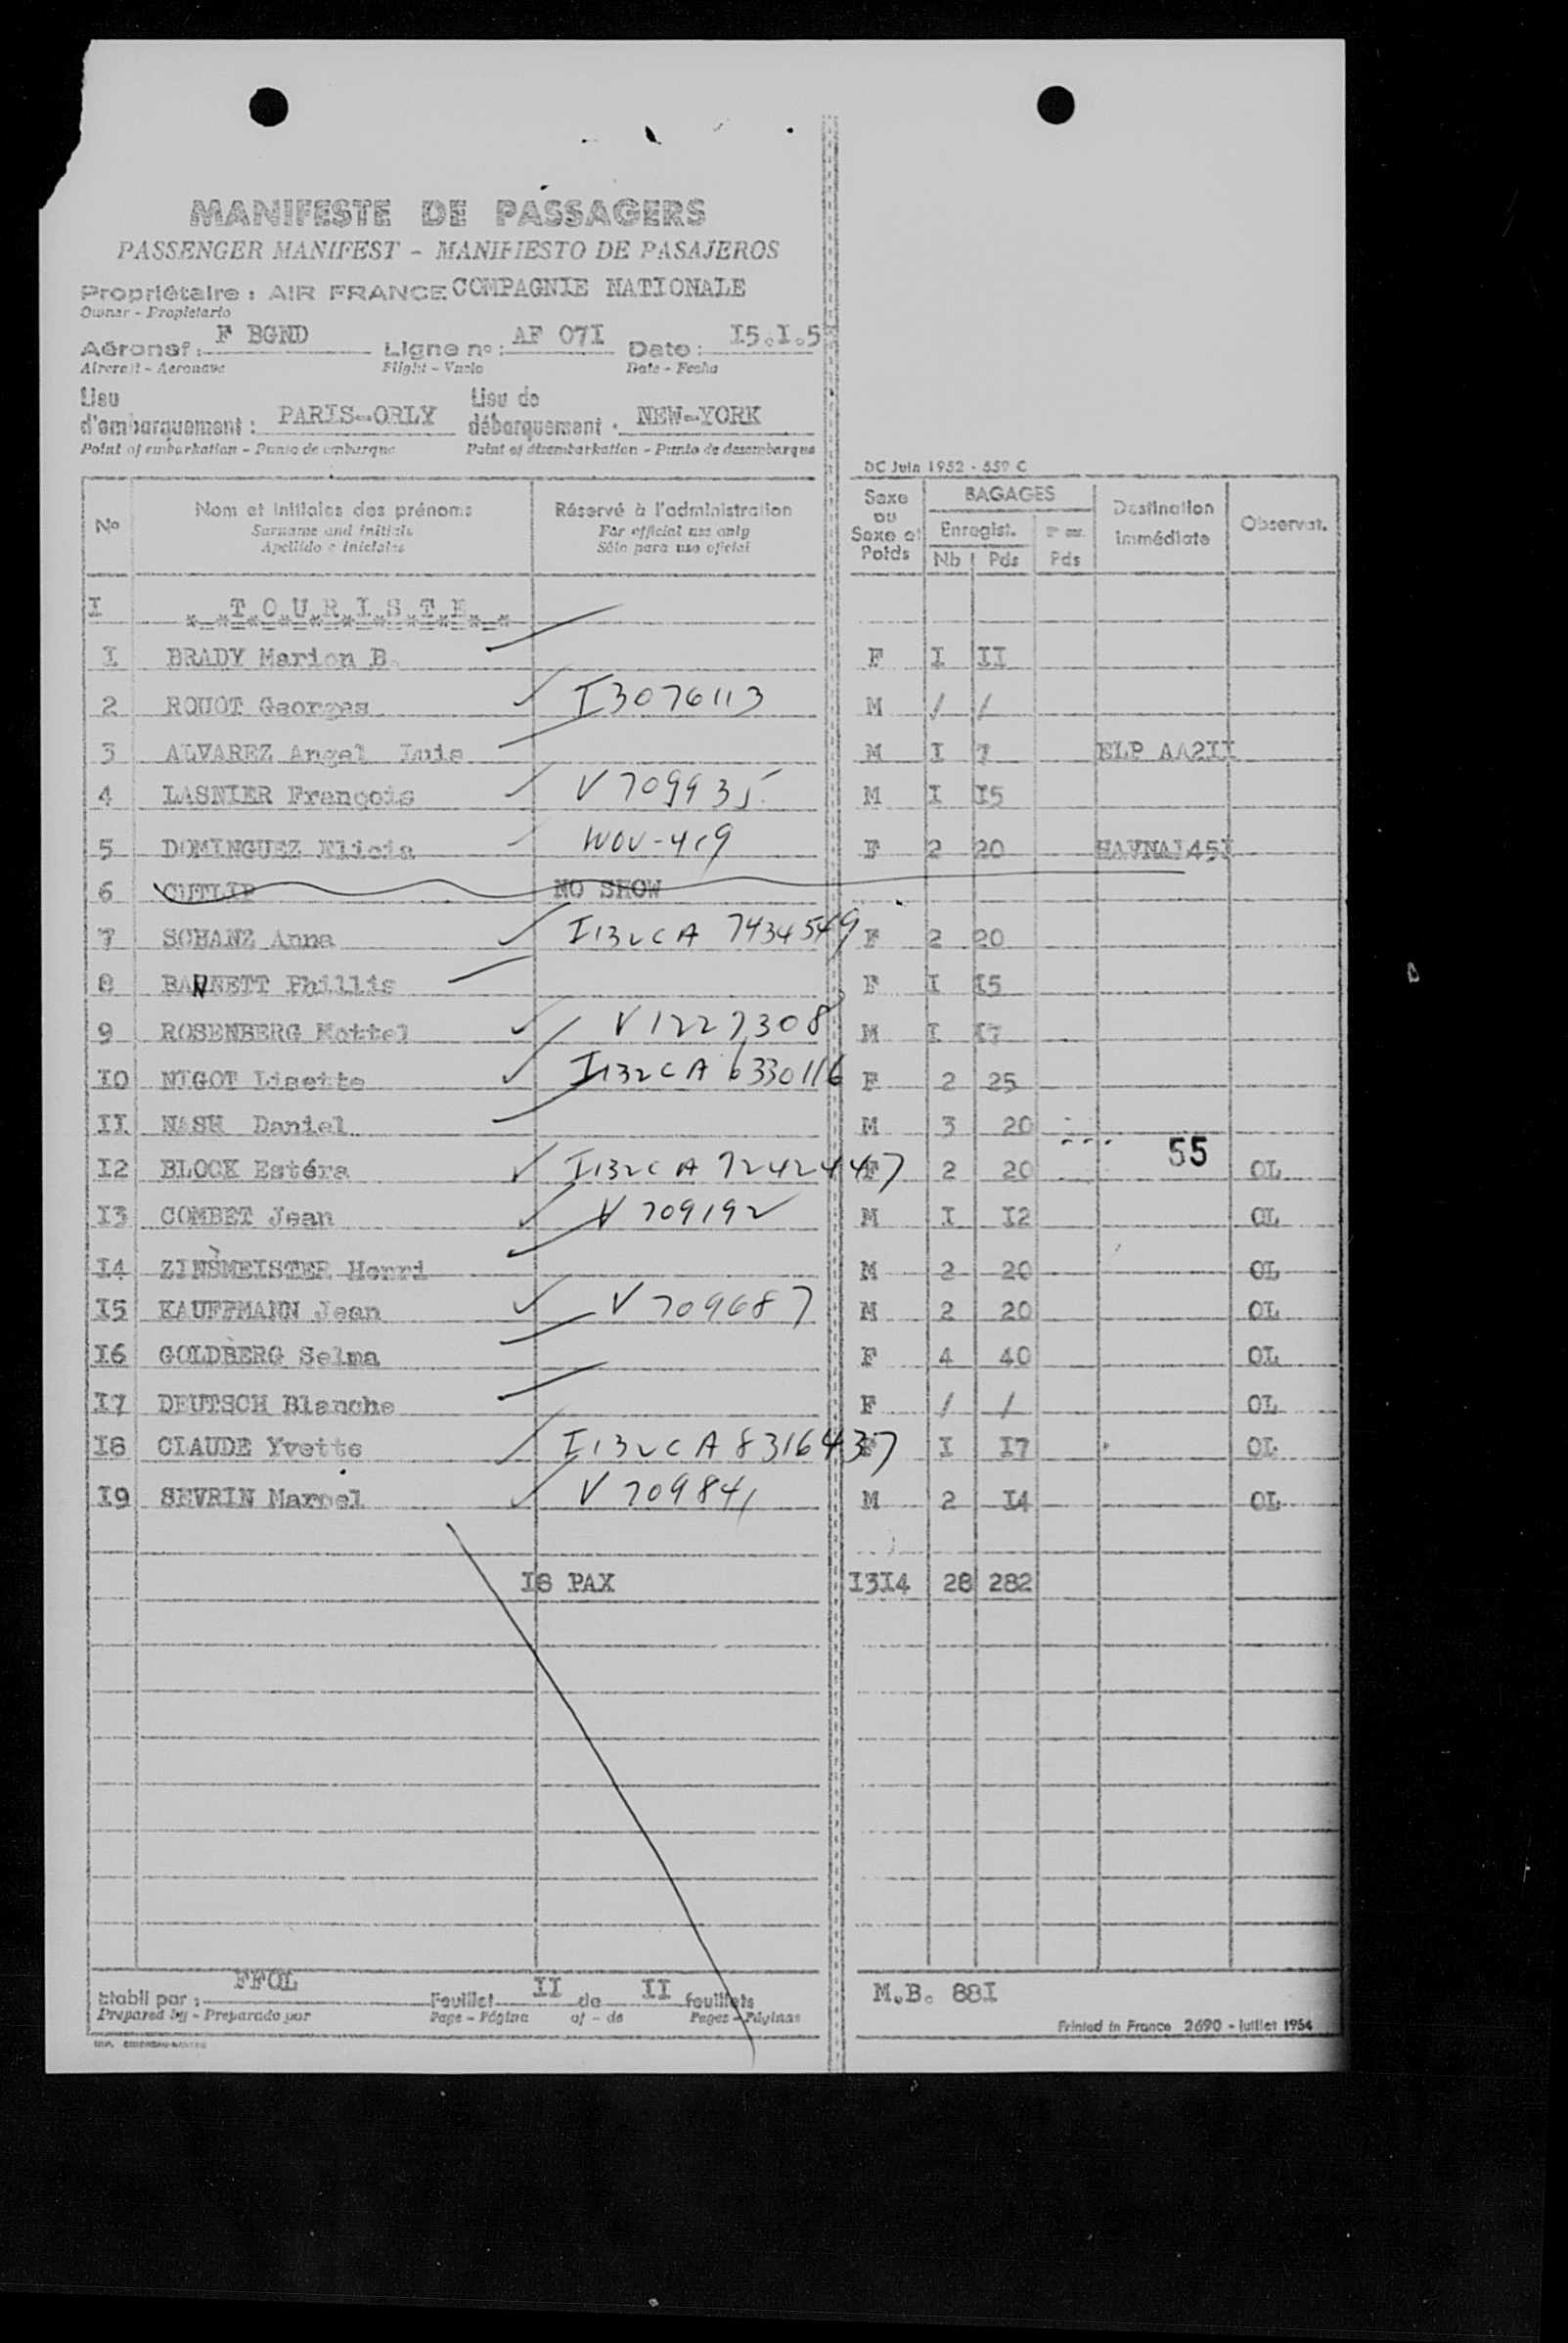 MANIFESTE DE PASSAGERS
PASSENGER MANIFEST - MANIFIESTO DE PASAJEROS
Propriétaire : AIR FRANCE COMPAGNIE NATIONALE
Owner - Propietario
Aéronef : F BGND Ligne n° : AF 07I Date : I5.I.5
Aircraft - Aeronave Flight - Vuelo Date - Fecha
Lieu d'embarquement : PARIS-ORLY Lieu de débarquement : NEW-YORK
Point of embarkation - Punto de embarque Point of disembarkation - Punto de desembarque
DC Juin 1952 - 559 C
N° Nom et initiales des prénoms Réservé à l'administration Sexe ou Sexe et Poids BAGAGES Destination immédiate Observat.
Surname and initials For official use only Enregist.
Apellido e iniciales Sólo para uso oficial Nb Pds Pds
I *_*T*O*U*R*I*S*T*E*_*
I BRADY Marion B. F I II
2 ROUOT Georges I3076113 M / /
3 ALVAREZ Angel Luis M I 7 ELP AA2II
4 LASNIER François V709935 M I I5
5 DOMINGUEZ Elicia WOV-419 F 2 20
6 CUTLIP NO SHOW
7 SCHANZ Anna I132CA 7434549 F 2 20
8 BARNETT Phillis F I I5
9 ROSENBERG Mottel V1227308 M I I7
IO NIGOT Lisette I132CA 6330116 F 2 25
II NASH Daniel M 3 20
55
I2 BLOCK Estéra I132CA 7242447 F 2 20 OL
I3 COMBET Jean V 709192 M I I2 OL
I4 ZINSMEISTER Henri M 2 20 OL
I5 KAUFFMANN Jean V 709687 M 2 20 OL
I6 GOLDBERG Selma F 4 40 OL
I7 DEUTSCH Blanche F / / OL
I8 CLAUDE Yvette I132CA 8316437 F I I7 OL
I9 SEVRIN Marcel V 709841 M 2 I4 OL
I8 PAX I3I4 28 282
Etabli par : FFOL Feuillet II de II feuillets M.B. 88I
Prepared by - Preparado por Page - Página of - de Pages - Páginas
Printed in France 2690 - juillet 1954